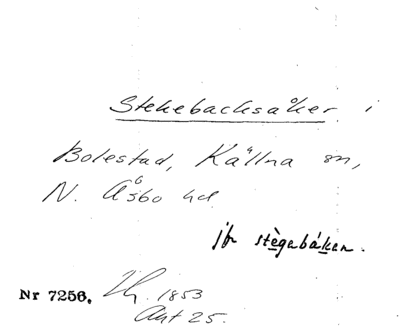 Stekebacksåker i
Bolestad, Källna sn,
N. Åsbo hd
jfr stègabáken.
Nr 7256. Lh. 1853
Akt 25.